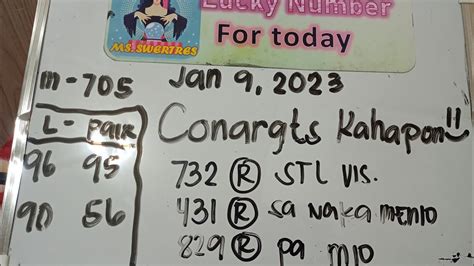 Lucky Number
For today
MS. SWERTRES
m-705 Jan 9, 2023
L - PAIR
96 95
90 56
Conargts Kahapon!!
732 R STL VIS.
431 R sa NakaMENIO
829 R pa MIO